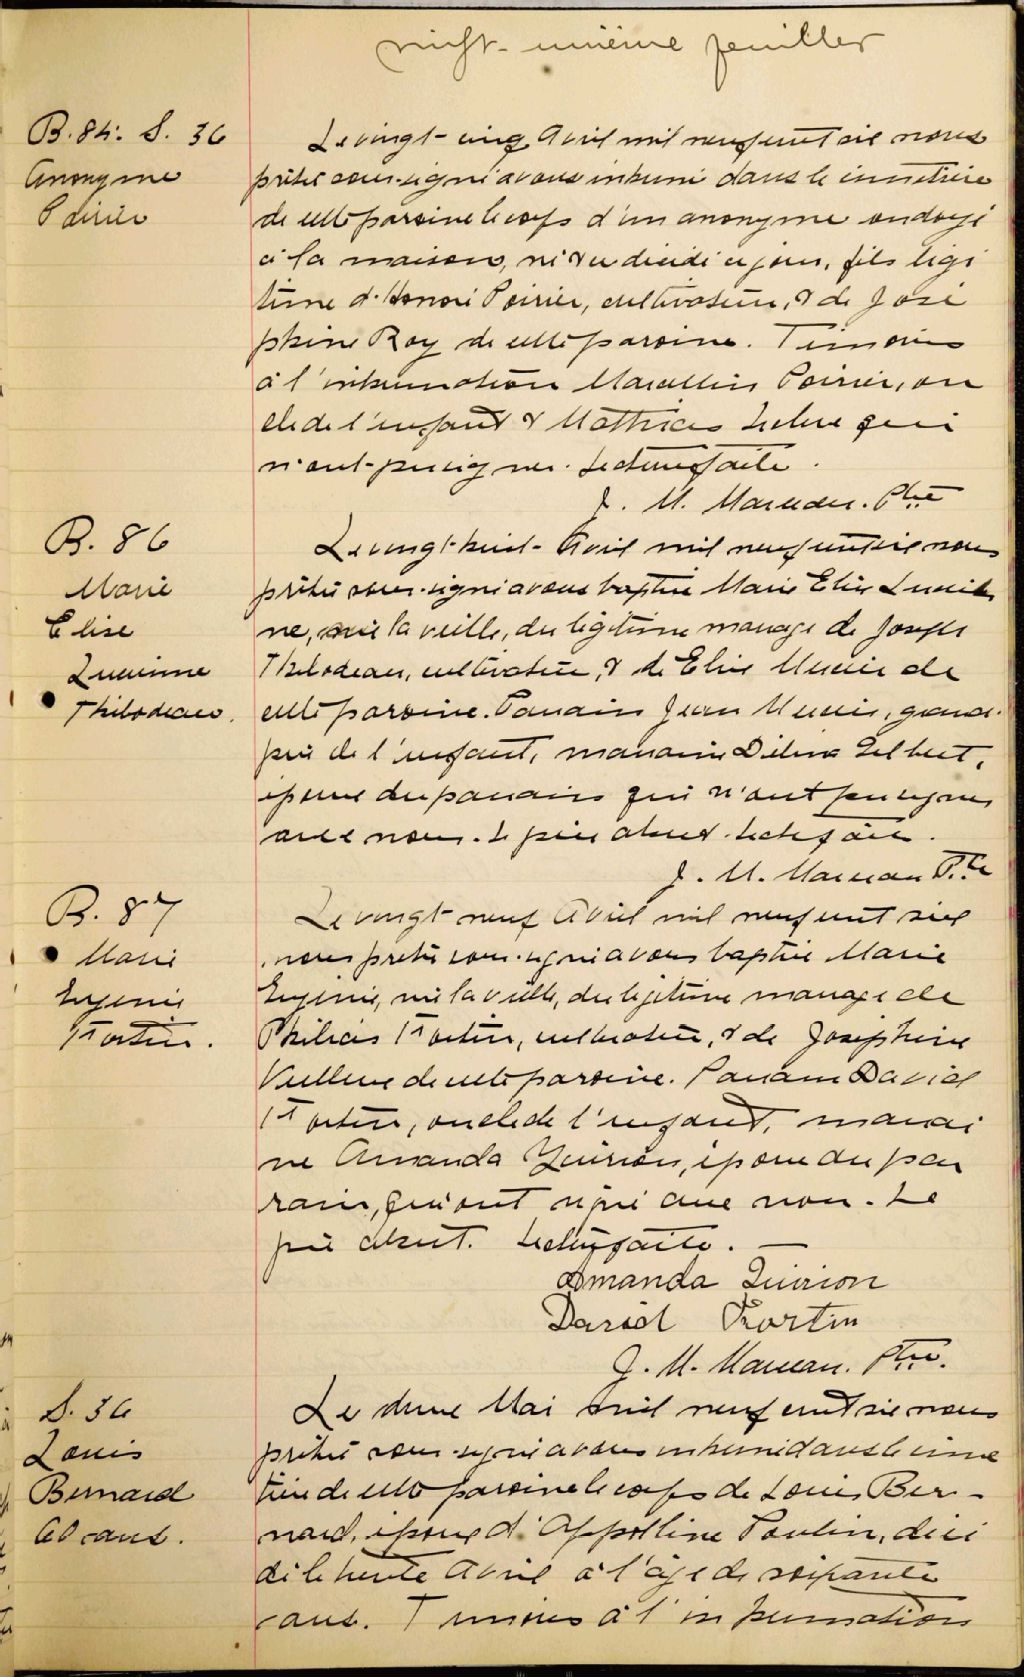 vingt-unième feuillet
B. 85. S. 36
Anonyme
Poirier
Le vingt-cinq Avril mil neuf cent six nous
prêtre soussigné avons inhumé dans le cimetière
de cette paroisse le corps d'un anonyme ondoyé
à la maison, né & décédé ce jour, fils légi
time d'Honoré Poirier, cultivateur, & de José
phine Roy de cette paroisse. Témoins
à l'inhumation Marcellin Poirier, on
cle de l'enfant & Mathias qui
n'ont pu signer. Lecture faite.
J. M. Marceau. Ptre
B. 86
Marie
Elise
Lucienne
Thibodeau.
Le vingt-huit Avril mil neuf cent six nous
prêtre soussigné avons baptisé Marie Elise Lucien
ne, née la veille, du légitime mariage de Joseph
Thibodeau, cultivateur, & de Elise Mercier de
cette paroisse. Parrain Jean Mercier, grand-
père de l'enfant, marraine Délina Gilbert,
épouse du parrain qui n'ont pu signer
avec nous. Le père absent. Lecture faite.
J. M. Marceau Ptre
B. 87
Marie
Eugénie
Fortin.
Le vingt-neuf Avril mil neuf cent six
nous prêtre soussigné avons baptisé Marie
Eugénie, née la veille, du légitime mariage de
Philéas Fortin, cultivateur, & de Joséphine
Veilleux de cette paroisse. Parrain David
Fortin, oncle de l'enfant, marrai
ne Amanda Quirion, épouse du par
rain, qui ont signé avec nous. Le
père absent. Lecture faite.
Amanda Quirion
David Fortin
J. M. Marceau. Ptre.
S. 36
Louis
Bernard
60 ans.
Le deux Mai mil neuf cent six nous
prêtre soussigné avons inhumé dans le cime
tière de cette paroisse le corps de Louis Ber-
nard, époux d'Appolline Poulin, décé
dé le trente Avril à l'âge de soixante
ans. Témoins à l'inhumation